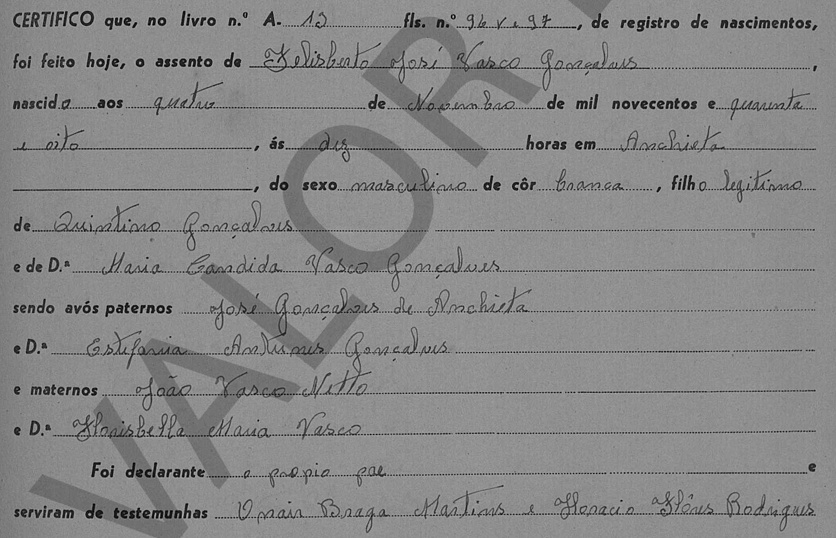 CERTIFICO que, no livro n.º A. 13 fls. n.º 96 v e 97, de registro de nascimentos,
foi feito hoje, o assento de Felisberto José Vasco Gonçalves,
nascido aos quatro de Novembro de mil novecentos e quarenta
e oito, ás dez horas em Anchieta
, do sexo masculino de côr branca, filho legitimo
de Quintino Gonçalves
e de D.ª Maria Candida Vasco Gonçalves
sendo avós paternos José Gonçalves de Anchieta
e D.ª Estefania Antunes Gonçalves
e maternos João Vasco Netto
e D.ª Florisbella Maria Vasco
Foi declarante o propio pae e
serviram de testemunhas Braga Martins e Horacio Flôres Rodrigues
VALOR